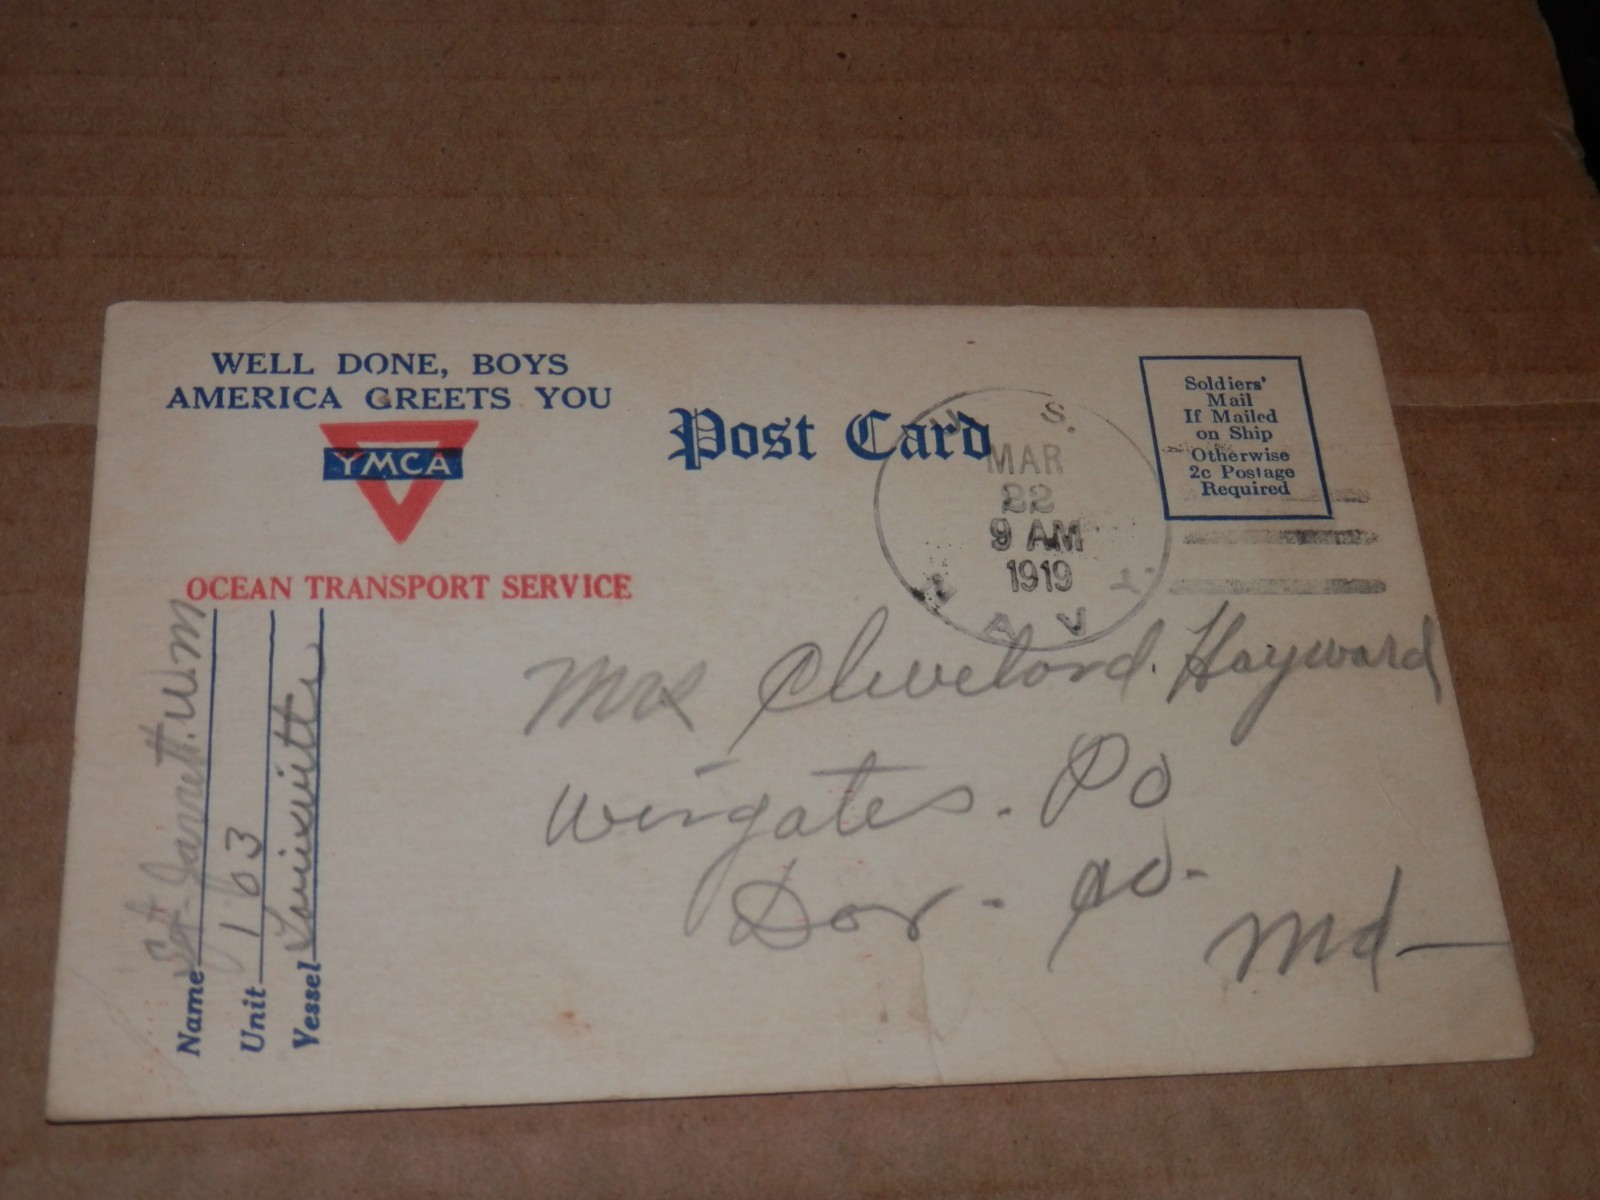 WELL DONE, BOYS
AMERICA GREETS YOU
YMCA
OCEAN TRANSPORT SERVICE
Post Card
U. S.
MAR
22
9 AM
1919
NAVY
Soldiers'
Mail
If Mailed
on Ship
Otherwise
2c Postage
Required
Name Sgt. Jarrett. W. M
Unit 163
Vessel Louisville
Mrs Cleveland. Hayward
Wingates. Po
Dor. Co.
Md